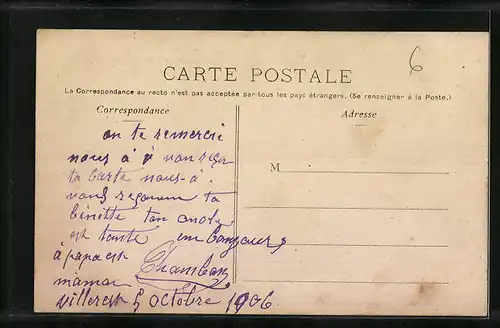 6
CARTE POSTALE
La Correspondance au recto n'est pas acceptée par tous les pays étrangers. (Se renseigner à la Poste.)
Correspondance
Adresse
M
on te remerci
nous à
ta carte nous à
ta
binette ton
est toute un bonjour
à papa et Chambon
maman
villerest 5 octobre 1906